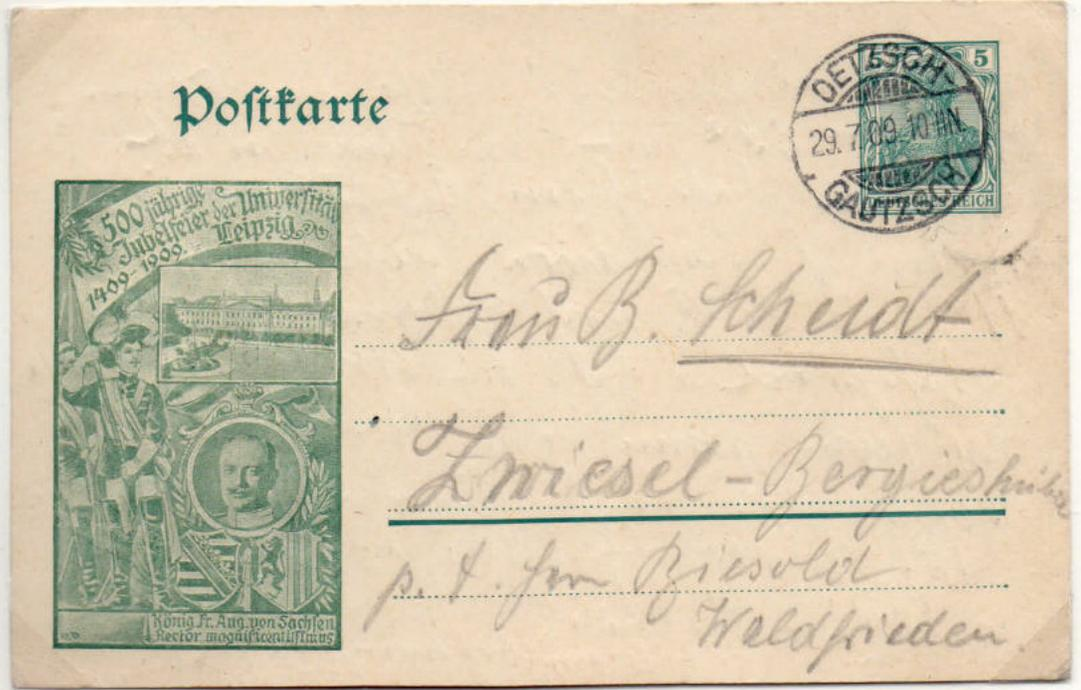 Postkarte
OETZSCH-
29.7.09.10-11N.
GAUTZSCH
5
DEUTSCHES REICH
500 jährige
Jubelfeier der Universität
Leipzig
1409-1909
König Fr. Aug. von Sachsen
Rector magnificentissimus
Frau B. Scheidt
Zwiesel - Bergieshübel
p. A. Herrn Biesold
Waldfrieden.